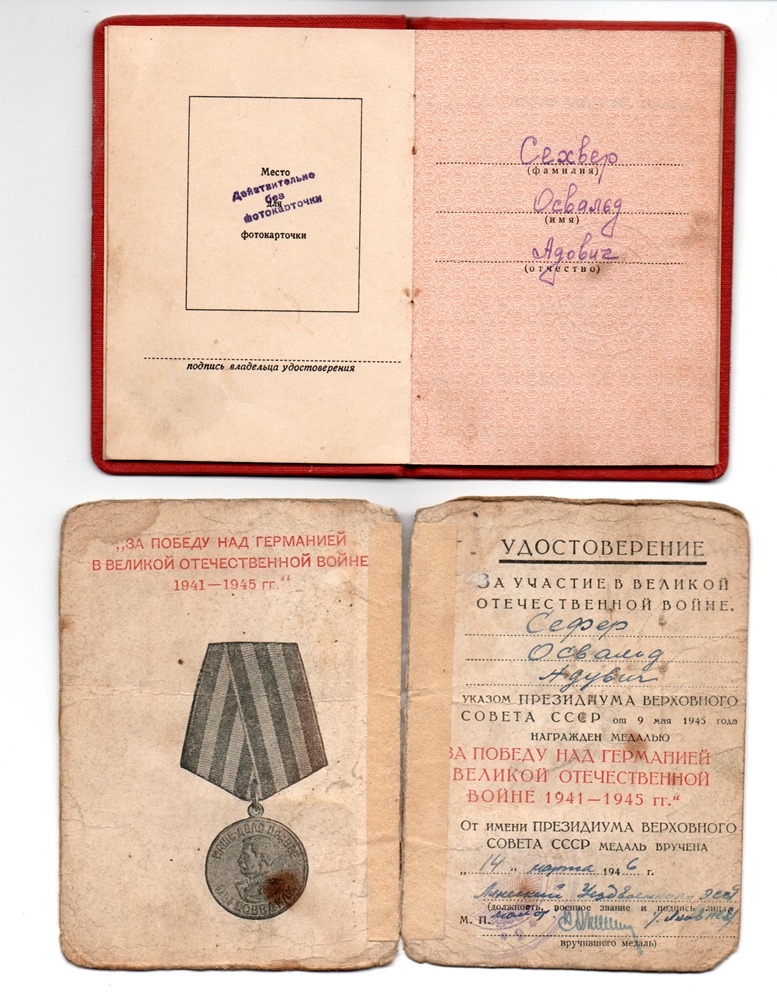 Место
для
фотокарточки
Действительно
без
фотокарточки
подпись владельца удостоверения
Сехвер
(фамилия)
Освальд
(имя)
Адович
(отчество)
„ЗА ПОБЕДУ НАД ГЕРМАНИЕЙ
В ВЕЛИКОЙ ОТЕЧЕСТВЕННОЙ ВОЙНЕ
1941—1945 гг.“
НАШЕ ДЕЛО ПРАВОЕ
МЫ ПОБЕДИЛИ
УДОСТОВЕРЕНИЕ
ЗА УЧАСТИЕ В ВЕЛИКОЙ
ОТЕЧЕСТВЕННОЙ ВОЙНЕ.
Сефер
Освальд
Адувич
УКАЗОМ ПРЕЗИДИУМА ВЕРХОВНОГО
СОВЕТА СССР от 9 мая 1945 года
НАГРАЖДЕН МЕДАЛЬЮ
ЗА ПОБЕДУ НАД ГЕРМАНИЕЙ
ВЕЛИКОЙ ОТЕЧЕСТВЕННОЙ
ВОЙНЕ 1941—1945 гг.“
От имени ПРЕЗИДИУМА ВЕРХОВНОГО
СОВЕТА СССР МЕДАЛЬ ВРУЧЕНА
„14„ марта 1946 г.
(должность, военное звание и подпись лица,
М. П.
вручившего медаль)